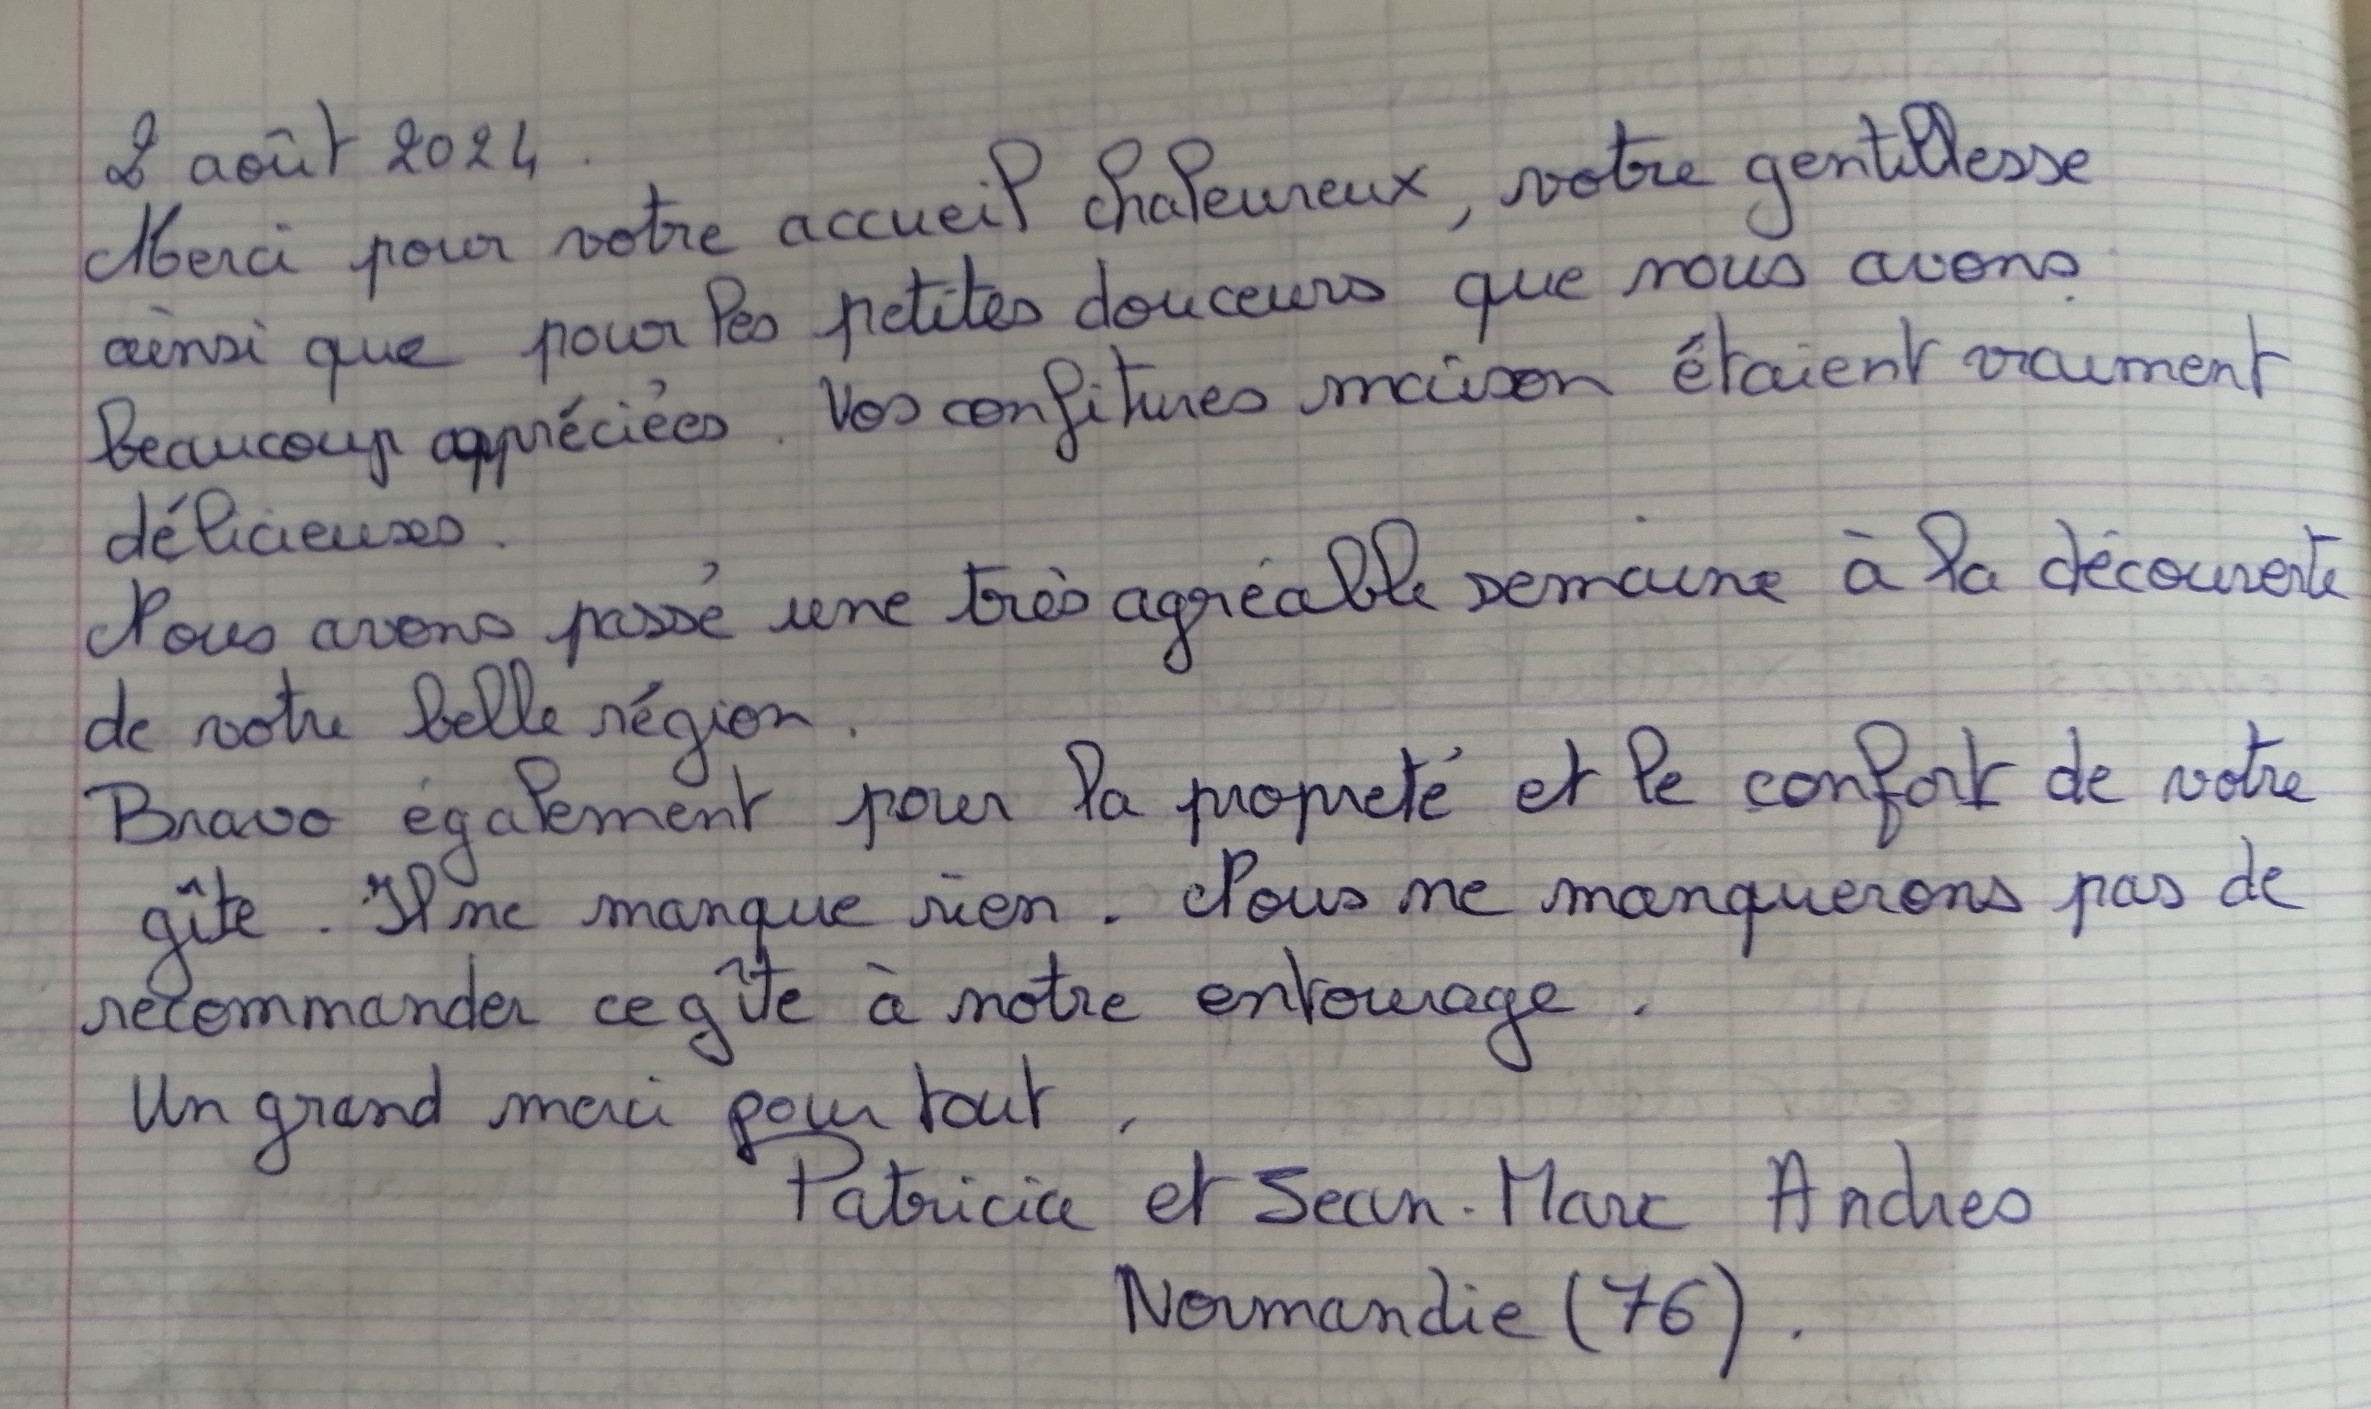 2 août 2024.
Merci pour votre accueil chaleureux, votre gentillesse
ainsi que pour les petites douceurs que nous avons
beaucoup appréciées. Vos confitures maison étaient vraiment
délicieuses.
Nous avons passé une très agréable semaine à la découverte
de votre belle région.
Bravo également pour la propreté et le confort de votre
gîte. Il ne manque rien. Nous ne manquerons pas de
recommander ce gîte à notre entourage.
Un grand merci pour tout.
Patricia et Jean-Marc Andres
Normandie (76).